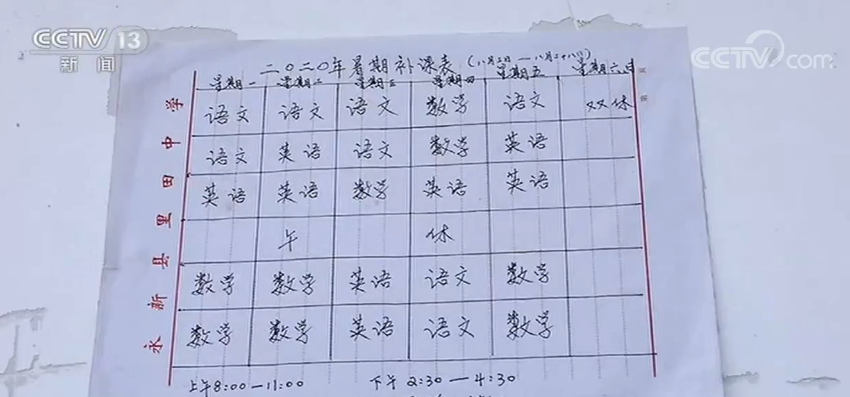 CCTV 13
新闻
CCTV com
二〇二〇年暑期补课表（八月三日—八月二十八日）
星期一 星期二 星期三 星期四 星期五 星期六、日
语文 语文 语文 数学 语文 双休
语文 英语 语文 数学 英语
英语 英语 数学 英语 英语
午 休
数学 数学 英语 语文 数学
数学 数学 英语 语文 数学
上午8:00—11:00 下午2:30—4:30
永新县里田中学